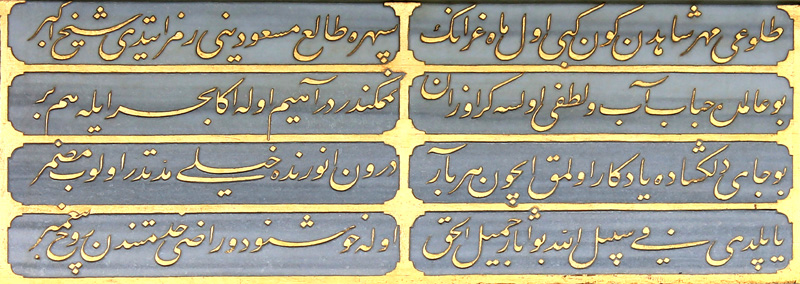 طلوعی مهر شاهدن کون کبی اول ماه غرانک
سپهره طالع مسعودینی رمز ایتدی شیخ اکبر
بو عالمده حباب آب ولطفی اولسه کر اوزان
اوله اکا بحر ایله هم بر
بو جای دلکشاده یادکار اولمق ایچون هر بار
درون انورنده خیلی مدتدر اولوب مضمر
یاپلدی فی سبیل الله بو آثار جمیل الحق
اوله خوشنود و راضی خدمتندن روح پیغمبر